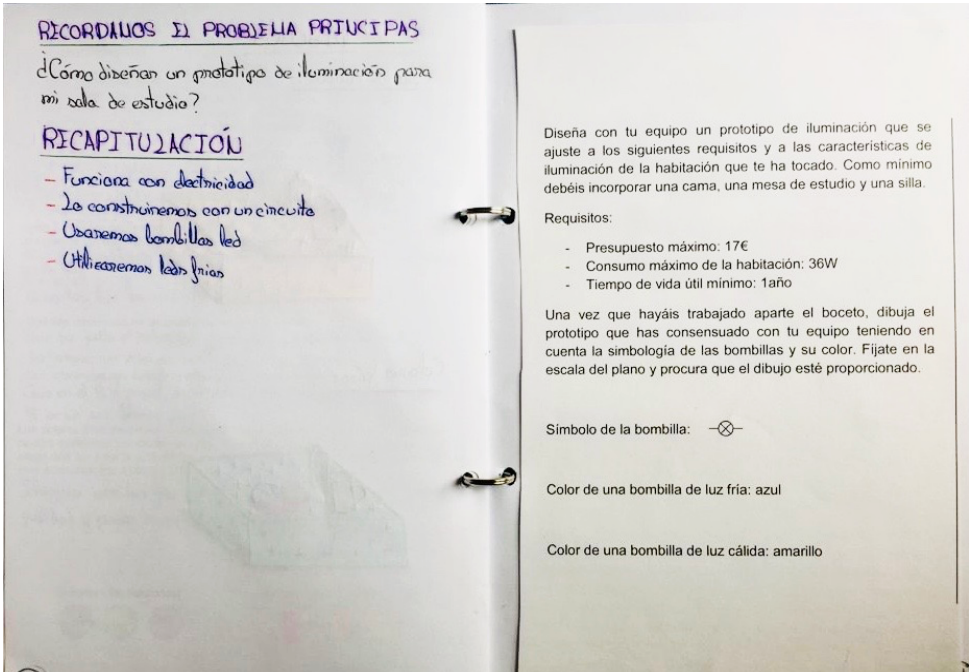 RECORDAMOS EL PROBLEMA PRINCIPAS
¿Cómo diseñar un prototipo de iluminación para
mi sala de estudio?
RECAPITULACIÓN
- Funciona con electricidad
- Lo construiremos con un circuito
- Usaremos bombillas led
- Utilizaremos leds frías
Diseña con tu equipo un prototipo de iluminación que se
ajuste a los siguientes requisitos y a las características de
iluminación de la habitación que te ha tocado. Como mínimo
debéis incorporar una cama, una mesa de estudio y una silla.
Requisitos:
- Presupuesto máximo: 17€
- Consumo máximo de la habitación: 36W
- Tiempo de vida útil mínimo: 1año
Una vez que hayáis trabajado aparte el boceto, dibuja el
prototipo que has consensuado con tu equipo teniendo en
cuenta la simbología de las bombillas y su color. Fíjate en la
escala del plano y procura que el dibujo esté proporcionado.
Símbolo de la bombilla:
Color de una bombilla de luz fría: azul
Color de una bombilla de luz cálida: amarillo